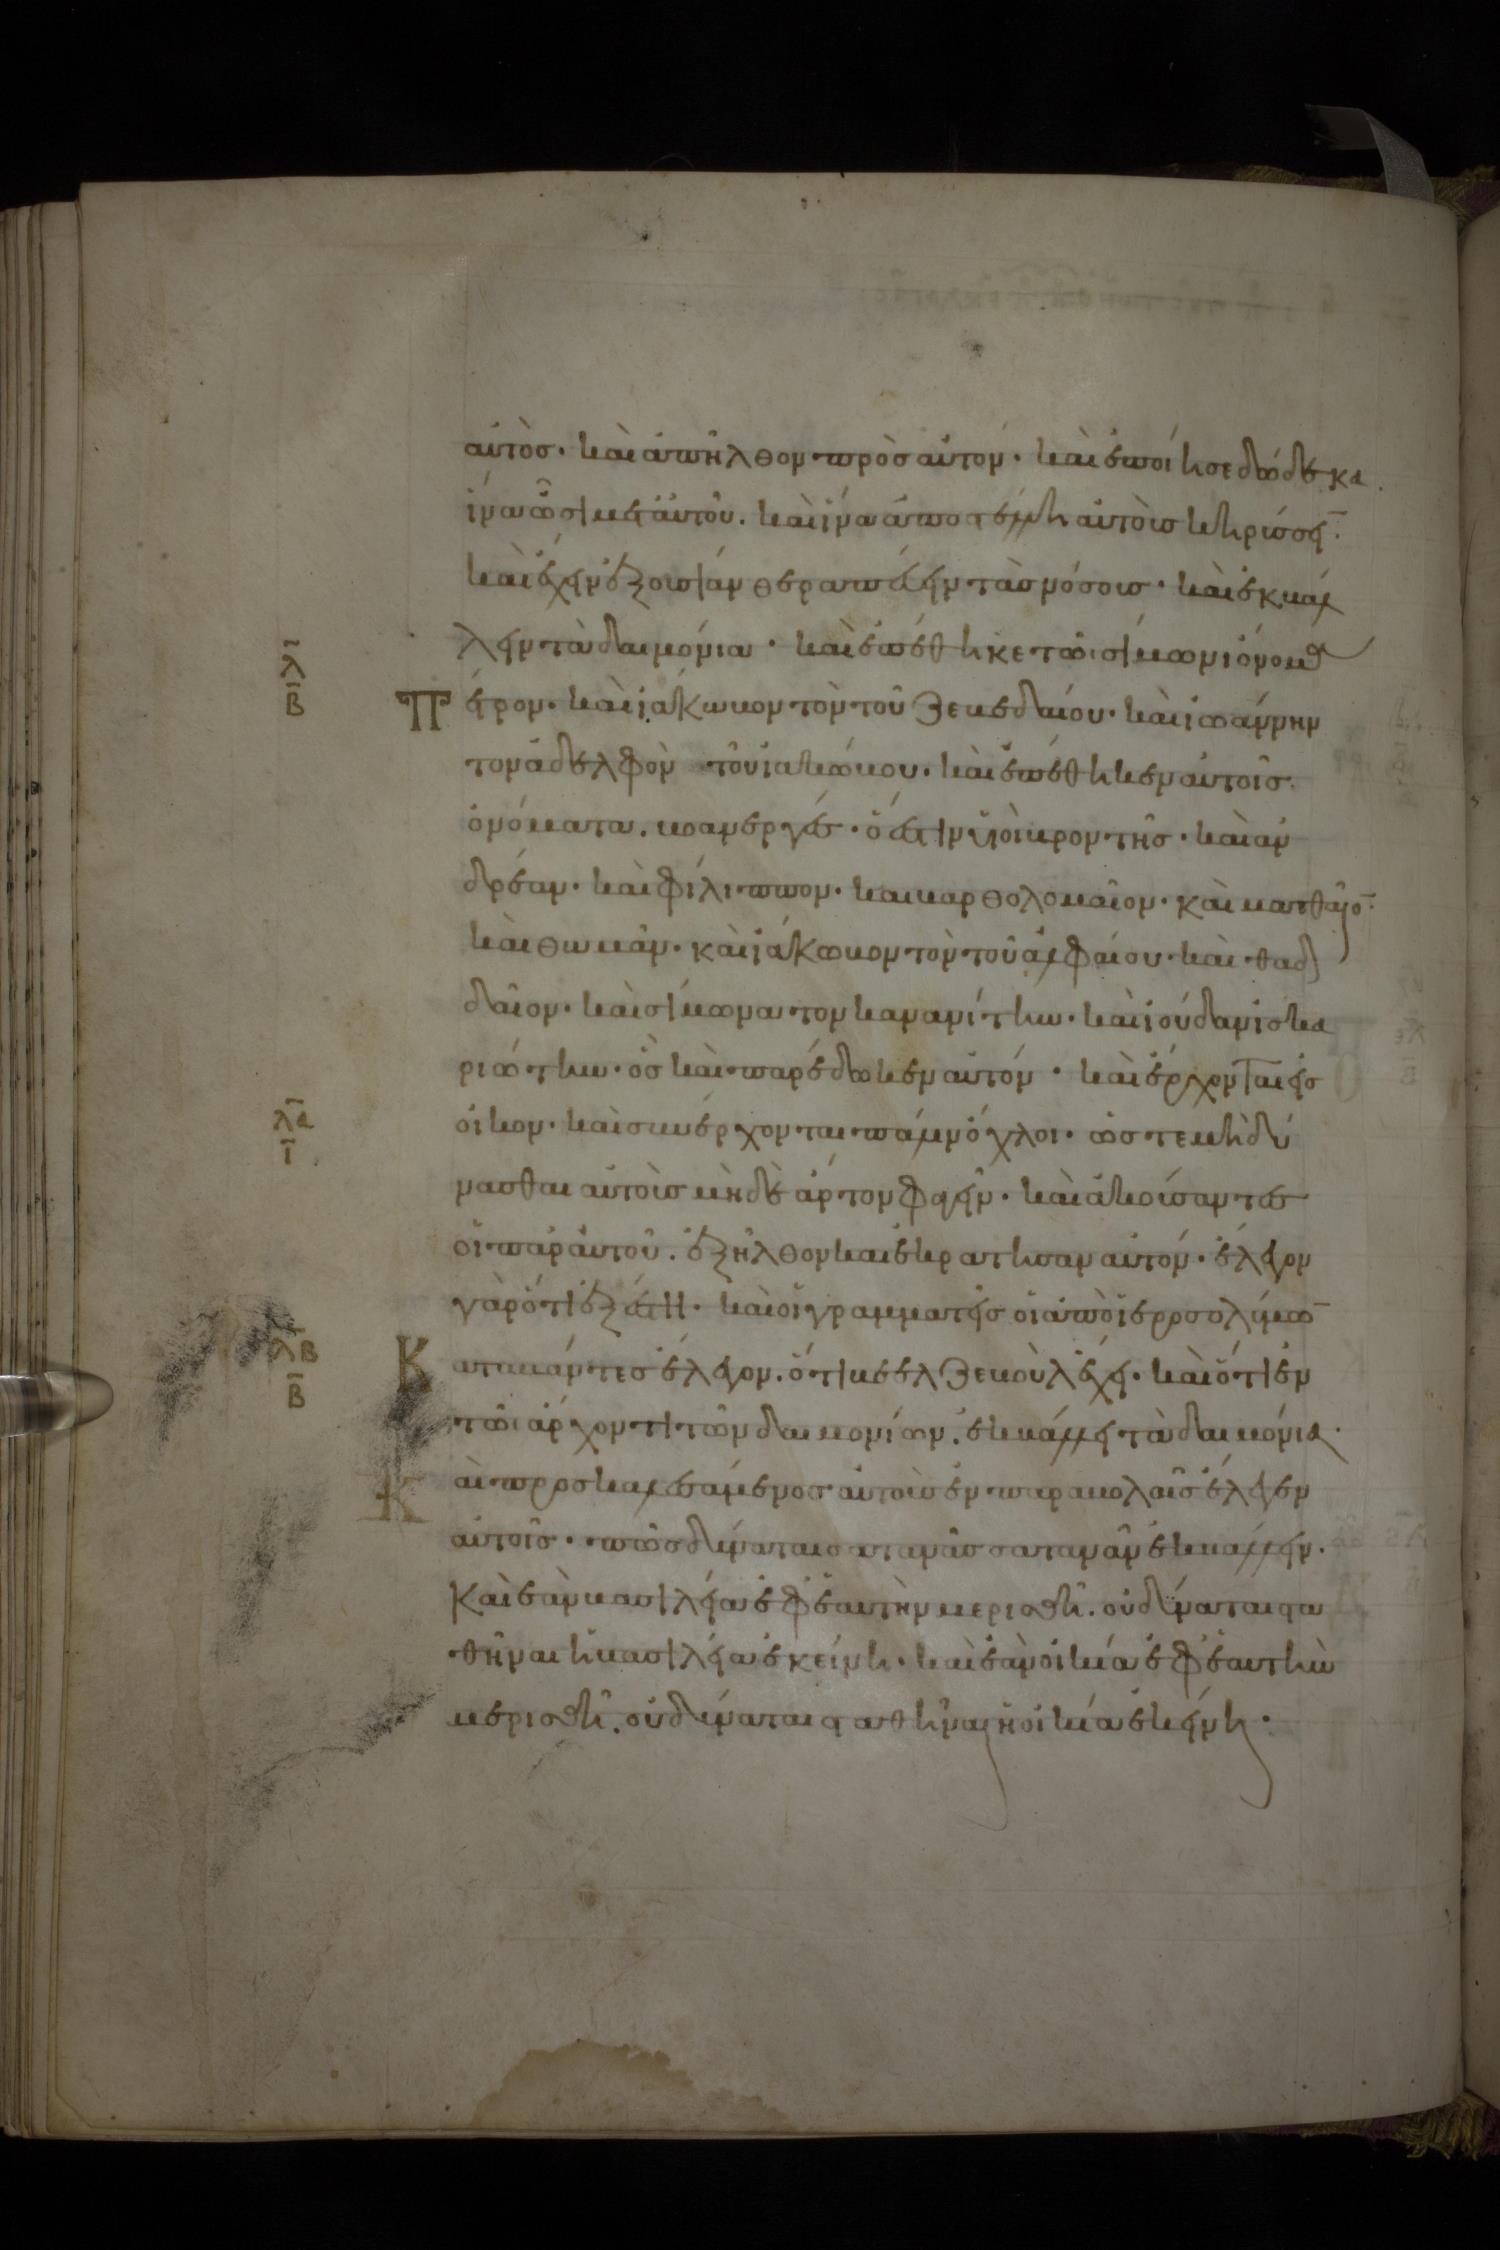 αὐτὸσ· καὶ ἀπῆλθον πρὸσ αὐτόν· καὶ ἐποίησε δώδεκα
ἵνα ὦσι μετ' αὐτοῦ. καὶ ἵνα ἀποστέλλη αὐτοὺσ κηρύσσειν̄·
καὶ ἔχειν ἐξουσίαν θεραπεύειν τὰσ νόσουσ· καὶ ἐκβάλ
λειν τὰ δαιμόνια· καὶ ἐπέθηκε τῶι σίμωνι ὄνομα
λ̄
β̄
Πέτρον· καὶ ἰάκωβον τὸν τοῦ ζεβεδαίου· καὶ ἰωάννην
τον ἀδελφὸν τοῦ ἰακώβου· καὶ ἐπέθηκεν αὐτοῖσ
ὀνόματα. βοανεργέσ· ὅ ἐστιν υἱοὶ βροντῆσ· καὶ ἀν
δρέαν· καὶ φίλιππον· και βαρθολομαῖον· καὶ ματθαῖο̄·
καὶ θωμᾶν· καὶ ἰάκωβον τὸν τοῦ ἀλφαίου· καὶ θαδ
δαῖον· καὶ σίμωνα τον κανανίτην· καὶ ἰούδαν ἰσκα
ριώτην· ὃσ καὶ παρέδωκεν αὐτόν· καὶ ἔρχονται εἰσ
λ̄α
ῑ
οἶκον· καὶ συνέρχονται πάλιν ὄχλοι· ὥστε μὴ δύ
νασθαι αὐτοὺσ μὴδὲ ἄρτον φαγεῖν· καὶ ἀκούσαντεσ
οἱ παρ' αὐτοῦ. ἐξῆλθον κρατῆσαι αὐτόν· ἔλεγον
γὰρ ὅτι ἐξέστη· καὶ οἱ γραμματεῖσ οἱ ἀπὸ ἱεροσολύμω̄
λ̄β
β̄
Καταβάντεσ ἔλεγον. ὅτι βεελζεβοὺλ ἔχει· καὶ ὅτι ἐν
τῶι ἄρχοντι τῶν δαιμονίων. ἐκβάλλει τὰ δαιμόνια·
Καὶ προσκαλεσάμενοσ αὐτοὺσ ἐν παραβολαῖσ ἔλεγεν
αὐτοῖσ· πῶσ δύναται σατανᾶσ σατανᾶν ἐκβάλλειν.
Καὶ ἐὰν βασιλεία ἐφ' ἑαυτὴν μερισθῆ. οὐ δύναται στα
θῆναι ἡ βασιλεία ἐκείνη· καὶ ἐὰν οἰκία ἐφ' ἑαυτὴν
μερισθῆ. οὐ δύναται σταθῆναι ἡ οἰκία ἐκείνη·